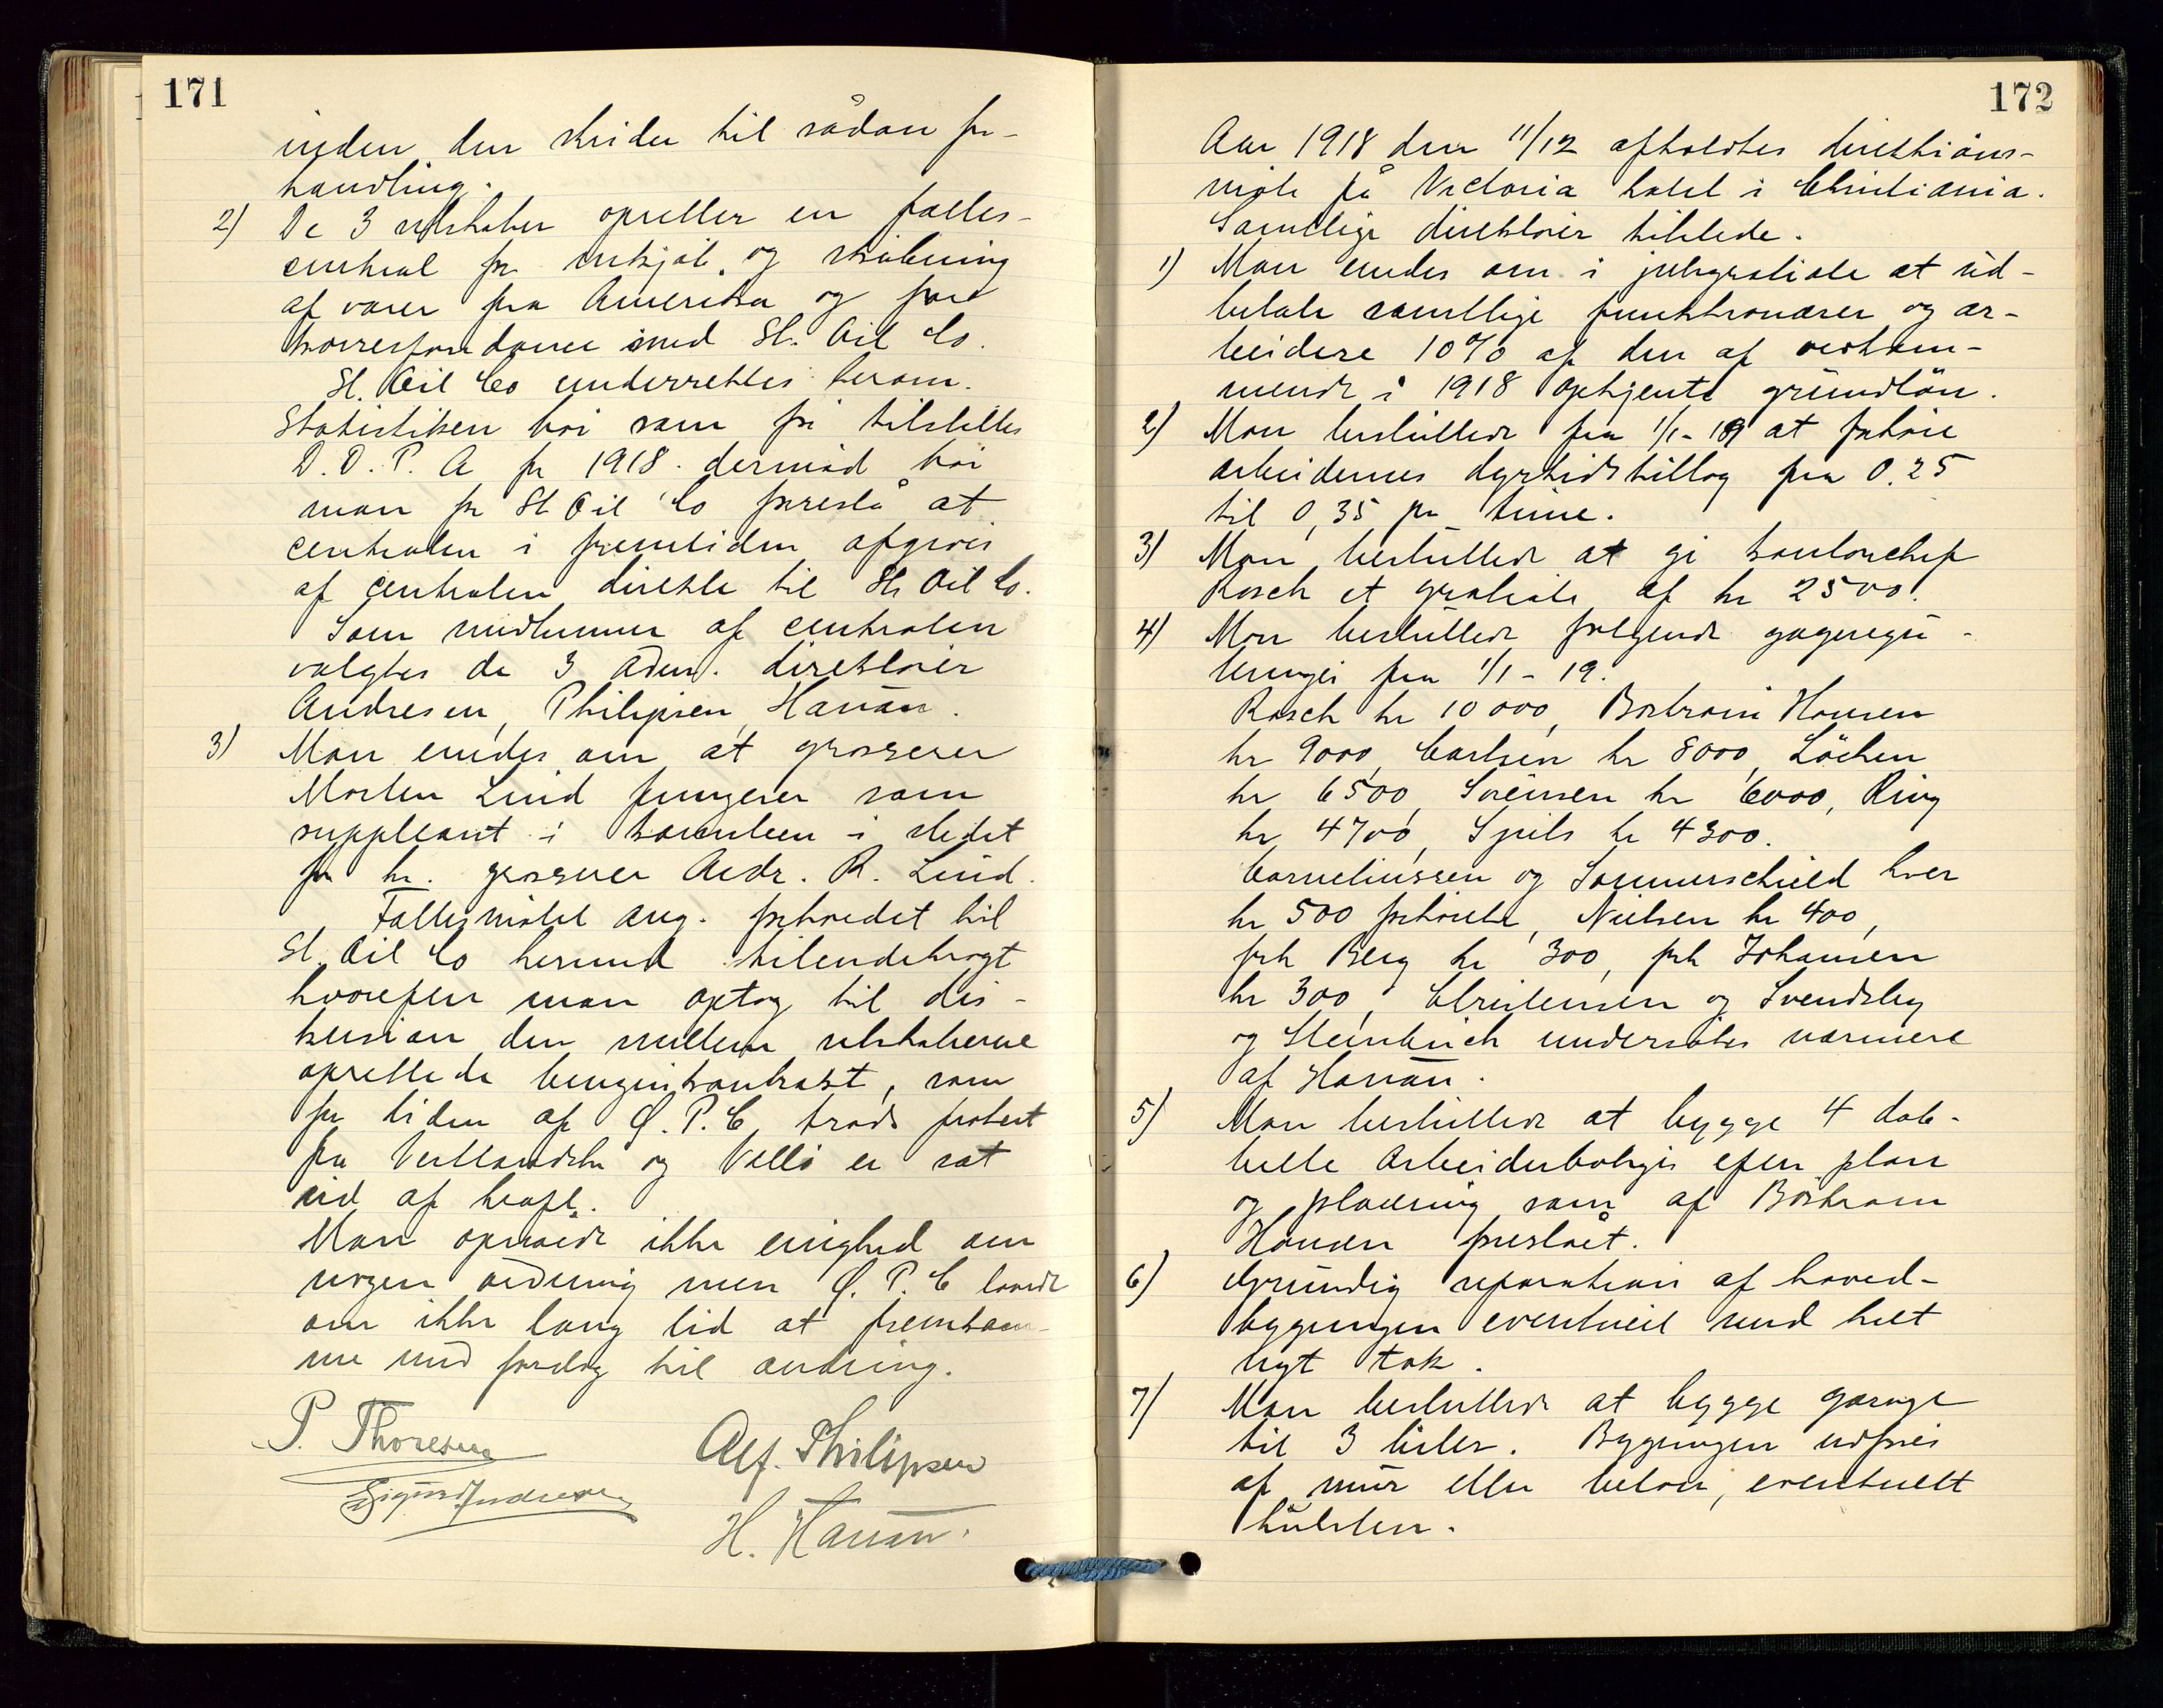 171
inden den skrider til sådan for-
handling.
2) De 3 selskaber opretter en fælles-
central for indkjøb og skibning
af varer fra Amerika og for
korrespondance med St. Oil Co.
St. Oil Co underrettes herom.
Statistiken bør som før tilstilles
D. D. P. A for 1918. dermed bør
man for St Oil Co foreslå at
centralen i fremtiden afgives
af centralen direkte til St. Oil Co.
Som medlemmer af centralen
valgtes de 3 adm. direktører
Andresen, Philipsen, Hanan.
3) Man enedes om at grosserer
Morten Lind fungerer som
suppleant i komiteen i stedet
for hr. grosserer Andr. R. Lind.
Fællesmødet ang. forholdet til
St. Oil Co hermed tilendebragt
hvorefter man optog til dis-
kusion den mellem selskaberne
oprettede benzinkontrakt, som
for tiden af Ø. P. C, trods protest
fra Vestlandske og Vallø er sat
ud af kraft.
Man opnåede ikke enighed om
nogen ordning men Ø. P. C lovede
om ikke lang tid at fremkom-
me med forslag til ændring.
P. Thoresen
Alf. Philipsen
Sigurd Andresen
H. Hanan.
172
Aar 1918 den 11/12 afholdtes direktions-
møte på Victoria hotel i Christiania.
Samtlige direktører tilstede.
1) Man enedes om i julegratiale at ud-
betale samtlige funktionærer og ar-
beidere 10% af den af vedkom-
mende i 1918 optjente grundløn.
2) Man besluttede fra 1/1-19 at forhøie
arbeidernes dyrtidstillæg fra 0.25
til 0,35 pr time.
3) Man besluttede at gi kontorchef
Rosch et gratiale af kr 2500.
4) Man besluttede følgende gageregu-
leringer fra 1/1-19.
Rosch kr 10 000, Boström Hansen
kr 9000, Carlsen kr 8000, Löchen
kr 6500, Sörensen kr 6000, Ring
kr 4700, Spils kr 4300.
Corneliussen og Sommerschield hver
kr 500 forhøielse, Nielsen kr 400,
frk Berg kr 300, frk Johansen
kr 300, Christensen og Svendsby
og Steinbuch undersøkes nærmere
af Hanan.
5) Man besluttede at bygge 4 dob-
belte Arbeiderboliger efter plan
og placering som af Boström
Hansen foreslået.
6) Grundig reparation af hoved-
bygningen eventuelt med helt
nyt tak.
7) Man besluttede at bygge garage
til 3 biler. Bygningen udføres
af mur eller beton, eventuelt
hulsten.